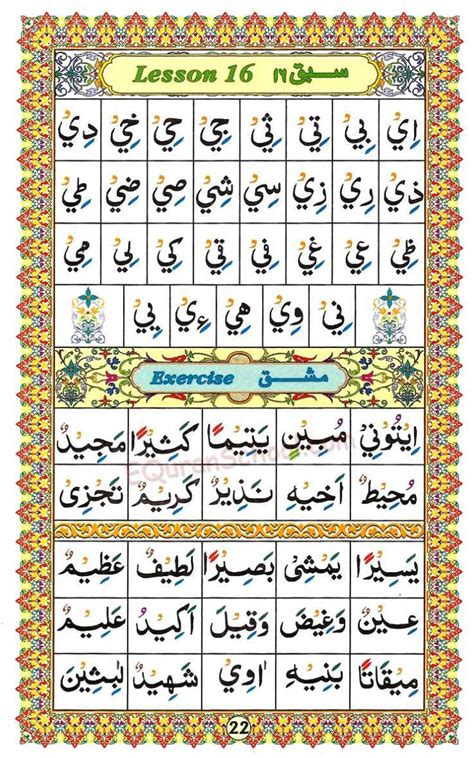 Lesson 16 سبق ١٦
اِيْ بِيْ تِيْ ثِيْ جِيْ حِيْ خِيْ دِيْ
ذِيْ رِيْ زِيْ سِيْ شِيْ صِيْ ضِيْ طِيْ
ظِيْ عِيْ غِيْ فِيْ قِيْ كِيْ لِيْ مِيْ
نِيْ وِيْ هِيْ ءِيْ يِيْ
Exercise مشق
اِيْتُوْنِيْ مُبِيْنٍ يَتِيْمًا كَثِيْرًا مَجِيْدٌ
مُحِيْطٌ اَخِيْهِ نَذِيْرٌ كَرِيْمٌ تَجْزِيْ
يَسِيْرًا يَمْشِيْ بَصِيْرًا لَطِيْفٌ عَظِيْمٌ
عِيْنٌ وَغِيْضَ وَقِيْلَ اَكِيْدُ عَلِيْمٌ
مِيْقَاتًا بَنِيْهِ اٰوِيْ شَهِيْدٌ لٰبِثِيْنَ
22